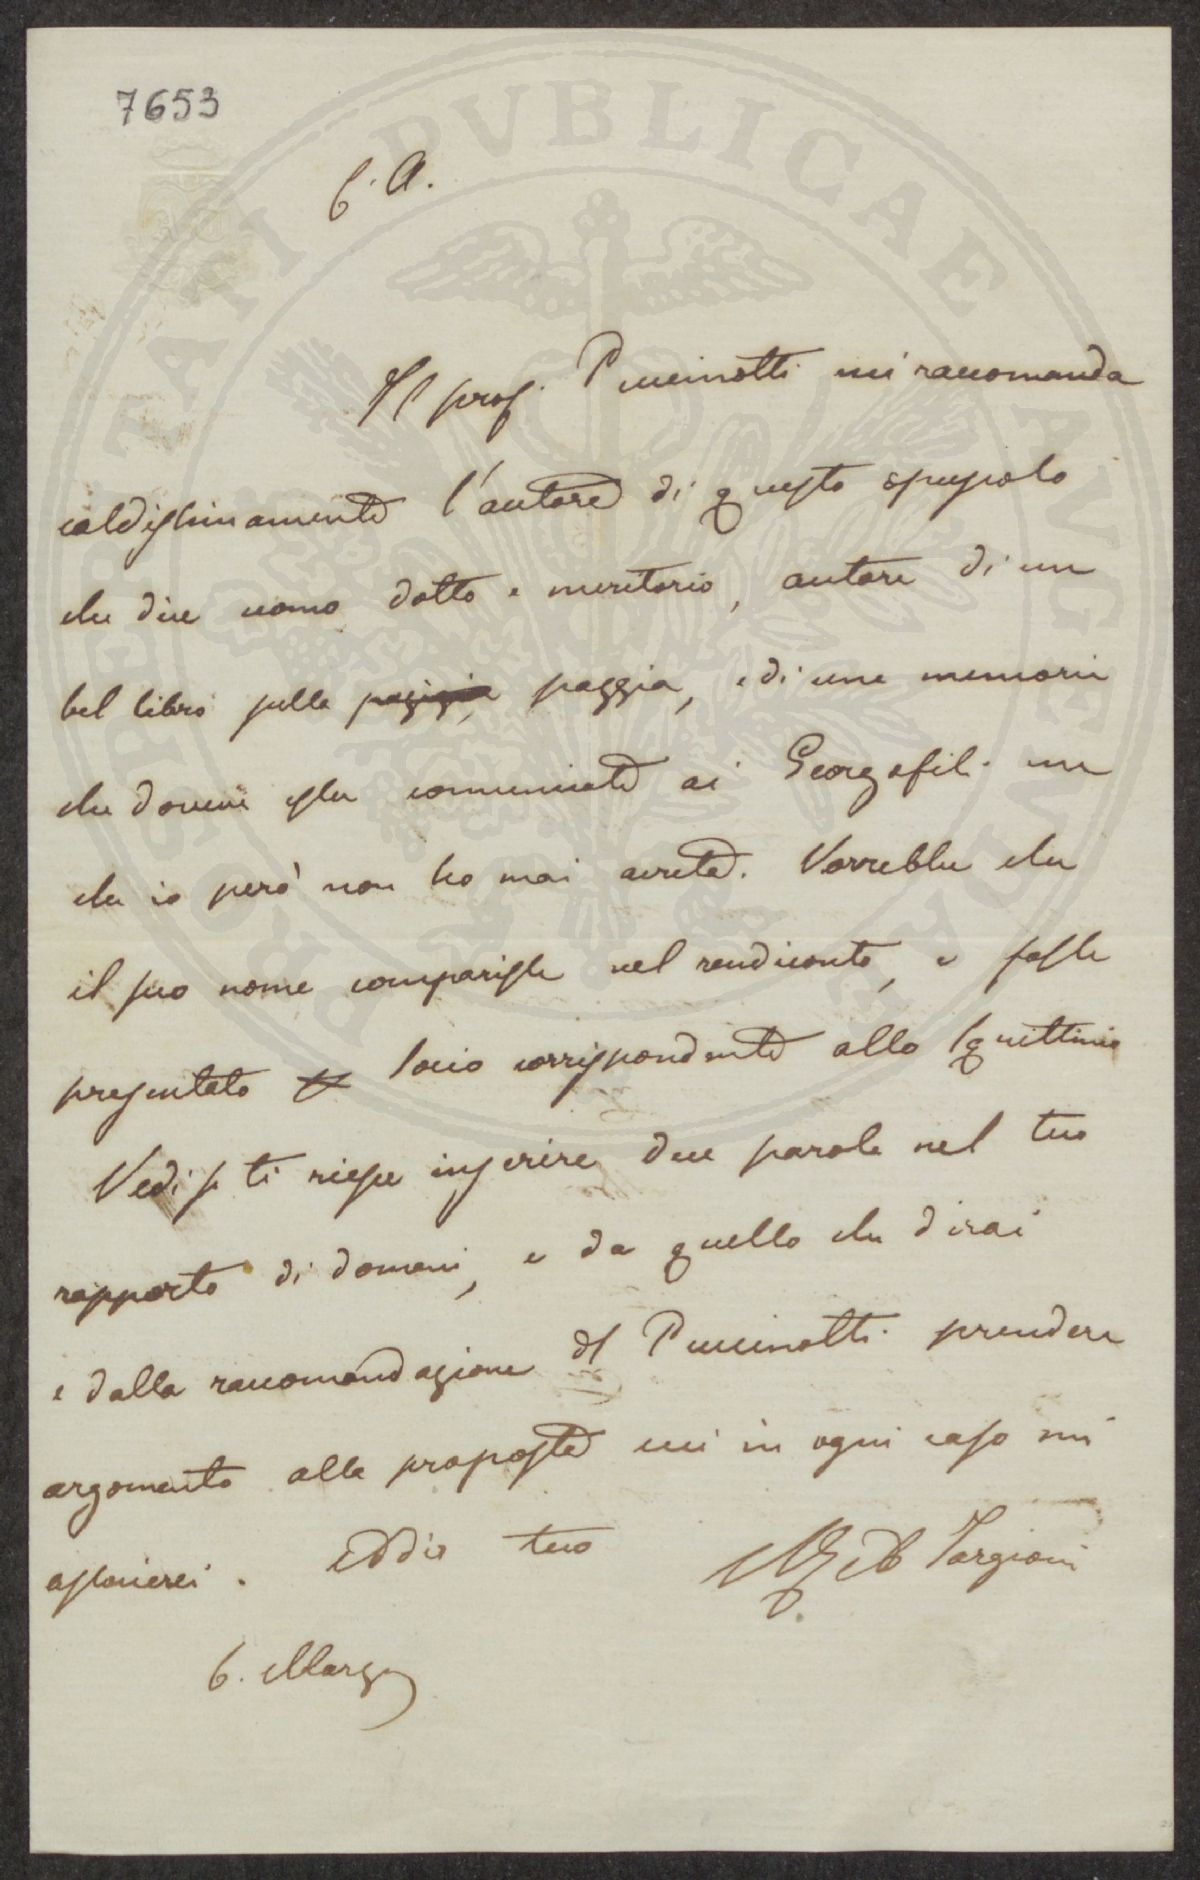 7653
C. A.
Il prof. Puccinotti mi raccomanda
caldissimamente l'autore di questo opuscolo
che dice uomo dotto e meritorio, autore di un
bel libro sulla pazizia, pazzia, e di una memoria
che doveva esser comunicata ai Georgofili ma
che io però non ho mai avuta. Vorrebbe che
il suo nome comparisse nel rendiconto, e fosse
presentato socio corrispondente allo squittinio
Vedi se ti riesce inserire due parole nel tuo
rapporto di domani, e da quello che dirai
e dalla raccomandazione del Puccinotti prendere
argomento alla proposta cui in ogni caso mi
associerei. Addio tuo
Targioni
6. Marzo
PVBLICAE